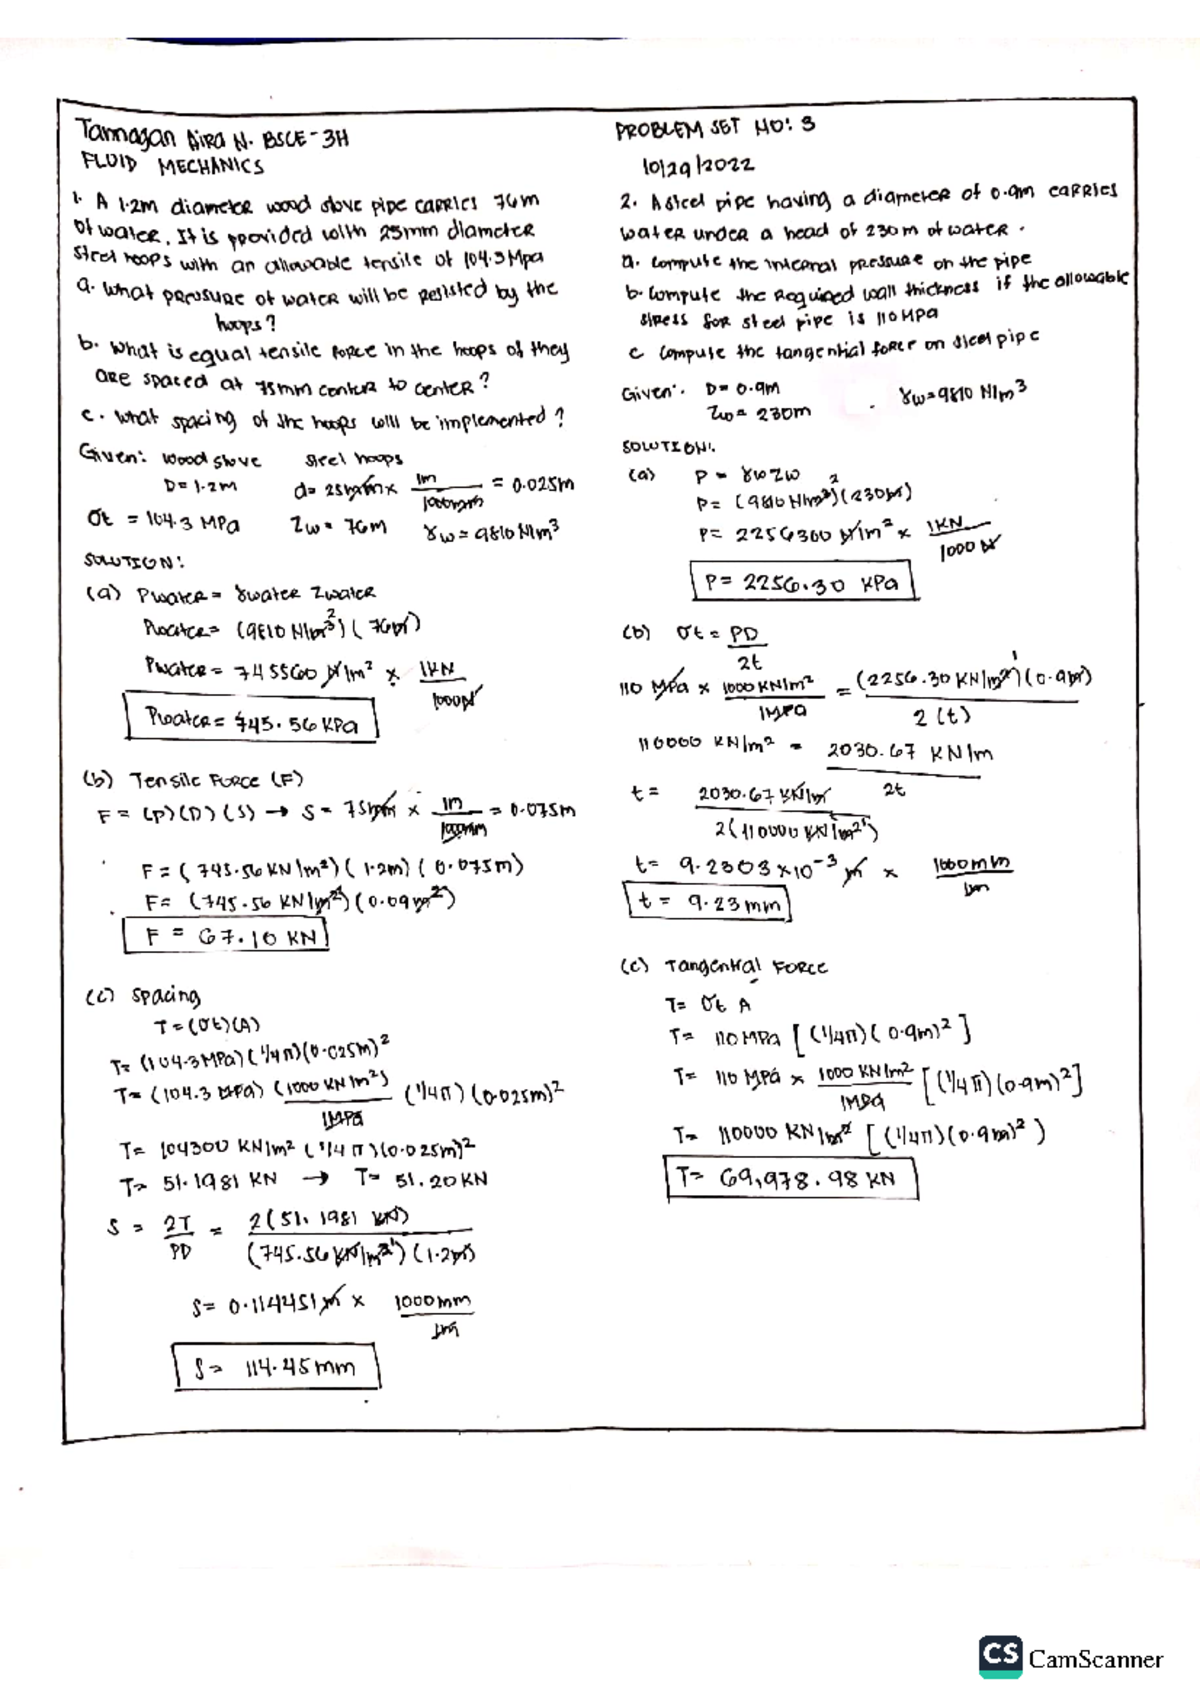 Tannagan Aira N. BSCE-3H
FLUID MECHANICS
1. A 1.2m diameter wood stove pipe carries 76m
of water. It is provided with 25mm diameter
steel hoops with an allowable tensile of 104.3 Mpa
a. What pressure of water will be resisted by the
hoops?
b. What is equal tensile force in the hoops of they
are spaced at 75mm center to center?
c. What spacing of the hoops will be implemented?
Given: wood stove steel hoops
D = 1.2m d = 25mm x 1m/1000mm = 0.025m
σt = 104.3 MPa Zw = 76m γw = 9810 N/m³
SOLUTION:
(a) Pwater = γwater Zwater
Pwater = (9810 N/m³²)(76m)
Pwater = 745560 N/m² x 1KN/1000N
Pwater = 745.56 KPa
(b) Tensile Force (F)
F = (P)(D)(S) → S = 75mm x 1m/1000mm = 0.075m
F = (745.56 KN/m²)(1.2m)(0.075m)
F = (745.56 KN/m²)(0.09m²)
F = 67.10 KN
(c) Spacing
T = (σt)(A)
T = (104.3 MPa)(1/4π)(0.025m)²
T = (104.3 MPa)(1000 KN/m²)/1MPa (1/4π)(0.025m)²
T = 104300 KN/m² (1/4π)(0.025m)²
T = 51.1981 KN → T = 51.20 KN
S = 2T/PD = 2(51.1981 KN)/(745.56 KN/m²¹)(1.2m)
S = 0.114451m x 1000mm/1m
S = 114.45mm
PROBLEM SET NO: 3
10/29/2022
2. A steel pipe having a diameter of 0.9m carries
water under a head of 230m of water.
a. compute the internal pressure on the pipe
b. compute the required wall thickness if the allowable
stress for steel pipe is 110MPa
c compute the tangential force on steel pipe
Given: D = 0.9m γw = 9810 N/m³
Zw = 230m
SOLUTION:
(a) P = γw Zw
P = (9810 N/m³²)(230m)
P = 2256300 N/m² x 1KN/1000N
P = 2256.30 KPa
(b) σt = PD/2t
110 MPa x 1000 KN/m²/1MPa = (2256.30 KN/m²¹)(0.9m)/2(t)
110000 KN/m² = 2030.67 KN/m/2t
t = 2030.67 KN/m/2(110000 KN/m²¹)
t = 9.2303 x10⁻³ m x 1000mm/1m
t = 9.23mm
(c) Tangential Force
T = σt A
T = 110MPa [(1/4π)(0.9m)²]
T = 110 MPa x 1000 KN/m²/1MPa [(1/4π)(0.9m)²]
T = 110000 KN/m² [(1/4π)(0.9m)²)
T = 69,978.98 KN
CS CamScanner